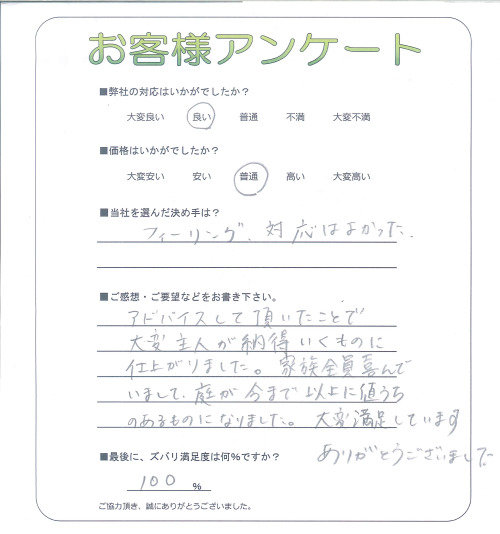 お客様アンケート
■弊社の対応はいかがでしたか?
大変良い 良い 普通 不満 大変不満
■価格はいかがでしたか?
大変安い 安い 普通 高い 大変高い
■当社を選んだ決め手は?
フィーリング、対応はよかった.
■ご感想・ご要望などをお書き下さい。
アドバイスして頂いたことで
大変主人が納得いくものに
仕上がりました。家族全員喜んで
いまして、庭が今まで以上に値うち
のあるものになりました。大変満足しています
ありがとうございました
■最後に、ズバリ満足度は何%ですか?
100 %
ご協力頂き、誠にありがとうございました。